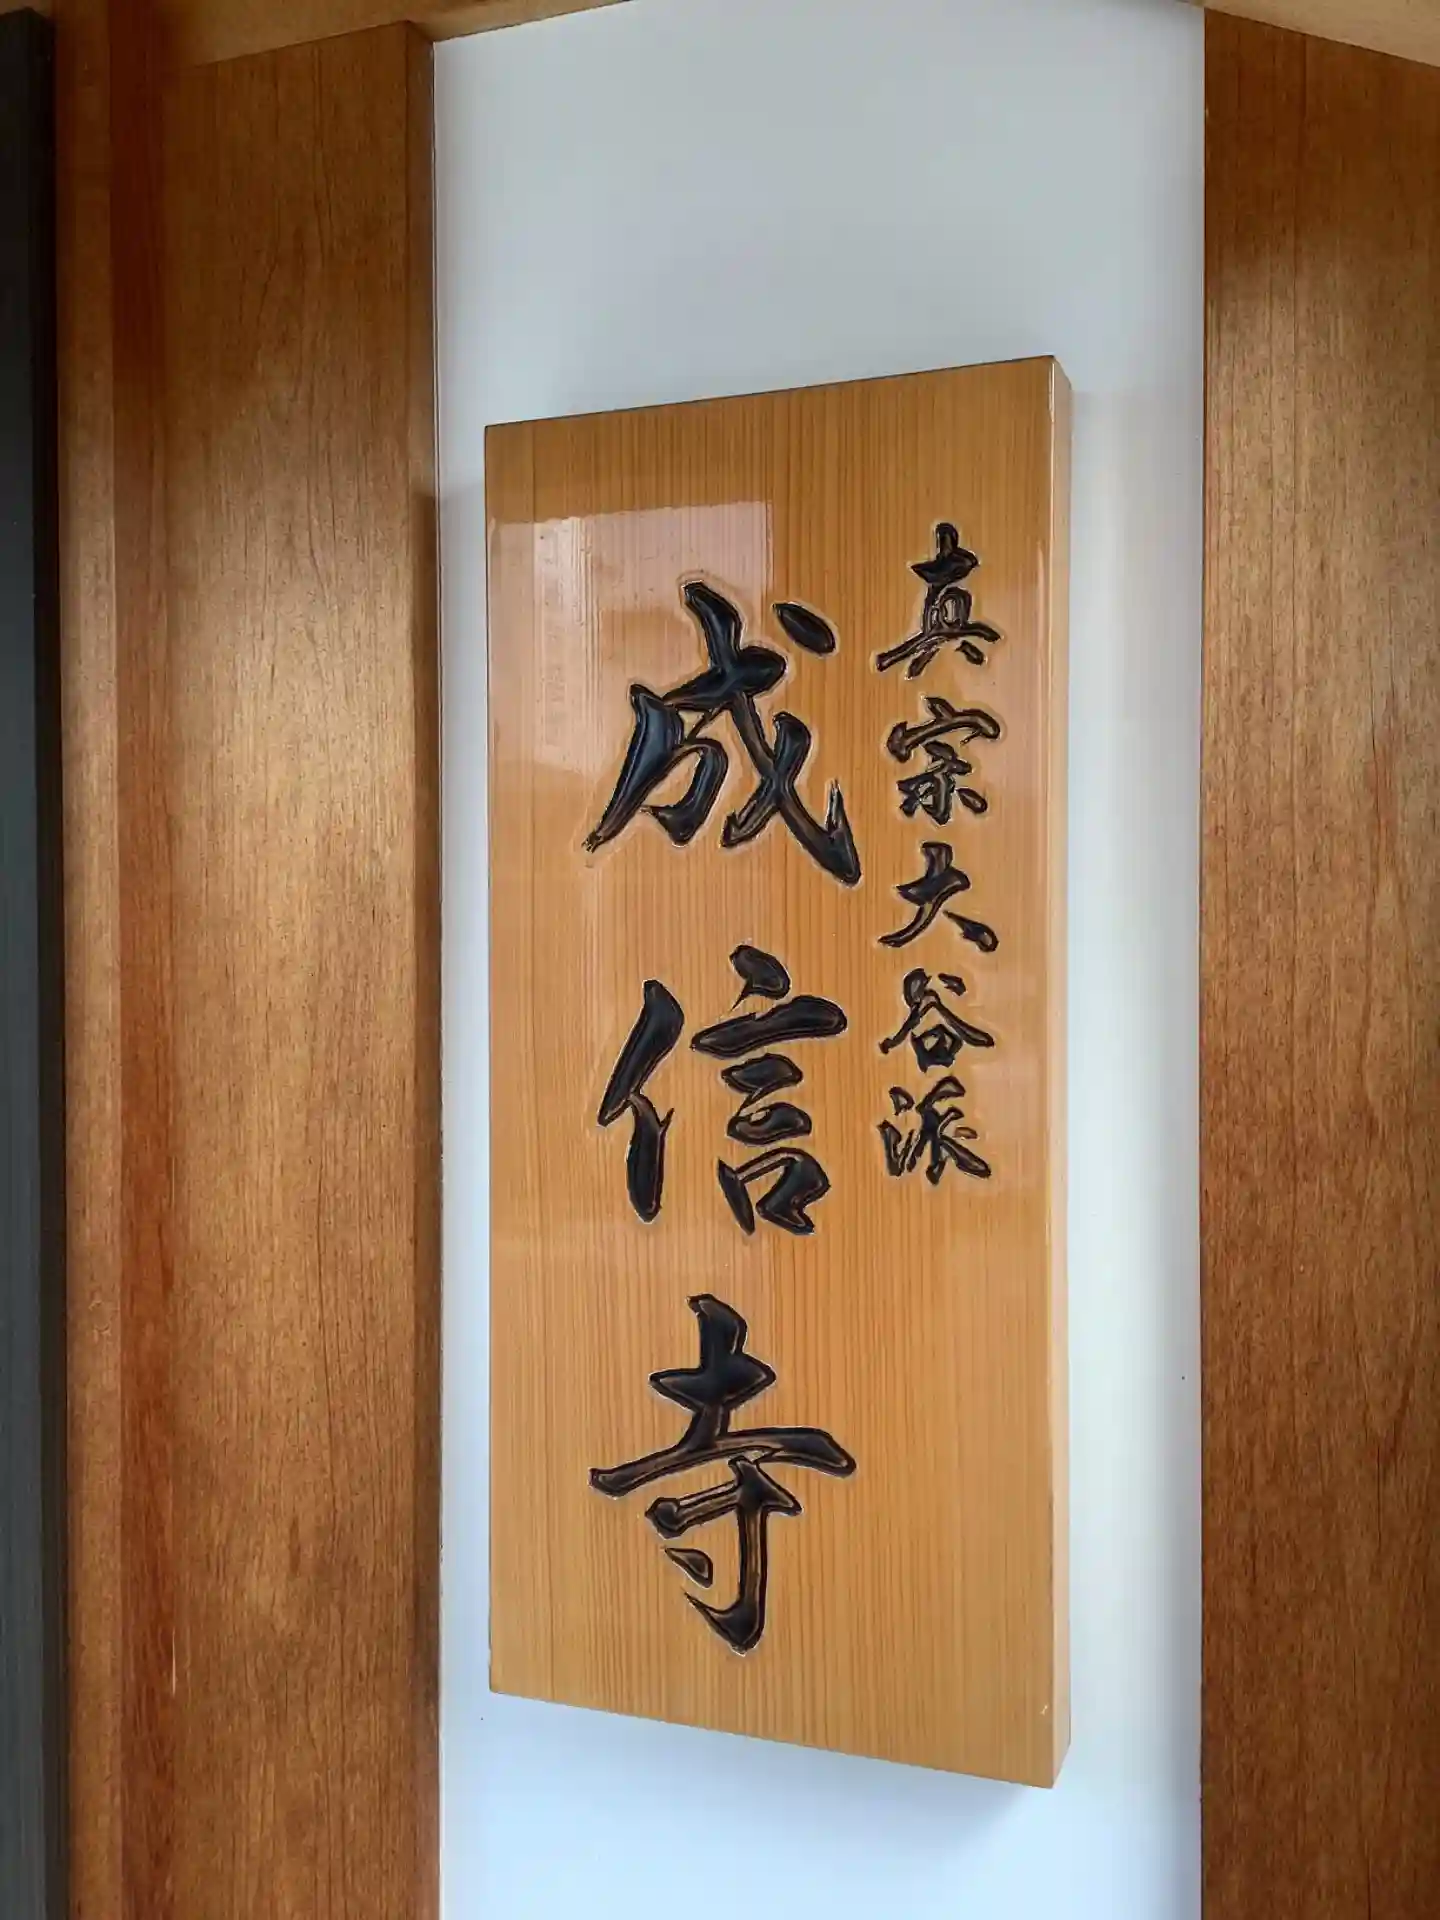 真宗大谷派
成信寺